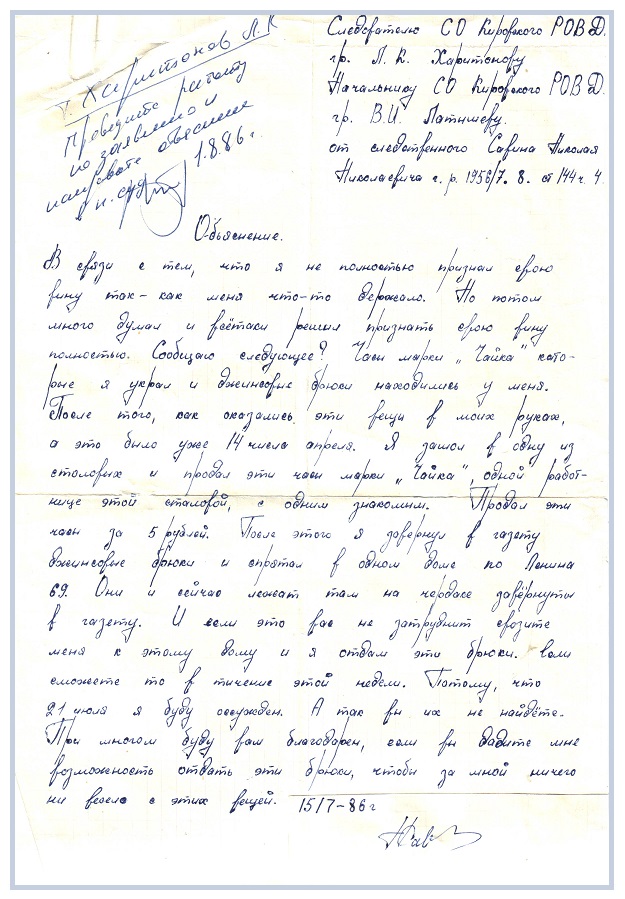 т. Харитонов Л. К
Проведите работу
по заявлению и
направьте объяснение
в н. суд
1.8.86г.
Следователю СО Кировского РОВД.
гр. Л. К. Харитонову
Начальнику СО Кировского РОВД.
гр. В.И. Латышеву.
от следственного Савина Николая
Николаевича г. р. 1956/7. 8. ст 144 ч. 4.
Объяснение.
В связи с тем, что я не полностью признал свою
вину так-как меня что-то держало. Но потом
много думал и всётаки решил признать свою вину
полностью. Сообщаю следующее? Часы марки „Чайка" кото-
рые я украл и джинсовые брюки находились у меня.
После того, как оказались эти вещи в моих руках,
а это было уже 14 числа апреля. Я зашол в одну из
столовых и продал эти часы марки „Чайка", одной работ-
нице этой сталовой, с одним знакомым. Продал эти
часы за 5 рублей. После этого я завернул в газету
джинсовые брюки и спрятал в одном доме по Ленина
69. Они и сейчас лежат там на чердаке завёрнуты
в газету. И если это вас не затруднит свозите
меня к этому дому и я отдам эти брюки. Если
сможете то в тичение этой недели. Потому, что
21 июля я буду осуждён. А так вы их не найдёте.
При многом буду вам благодарен, если вы дадите мне
возможность отдать эти брюки, чтобы за мной ничего
ни весело с этих вещей. 15/7-86г